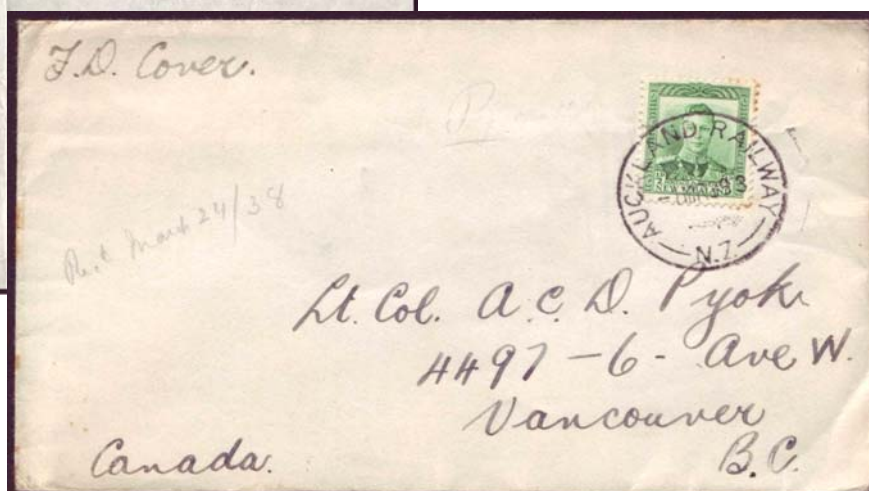 F.D. Cover.
AUCKLAND-RAILWAY
N.Z.
NEW ZEALAND
March 24/38
Lt. Col. A. C. D. Pyoke
4497 - 6 - Ave W.
Vancouver
B.C.
Canada.